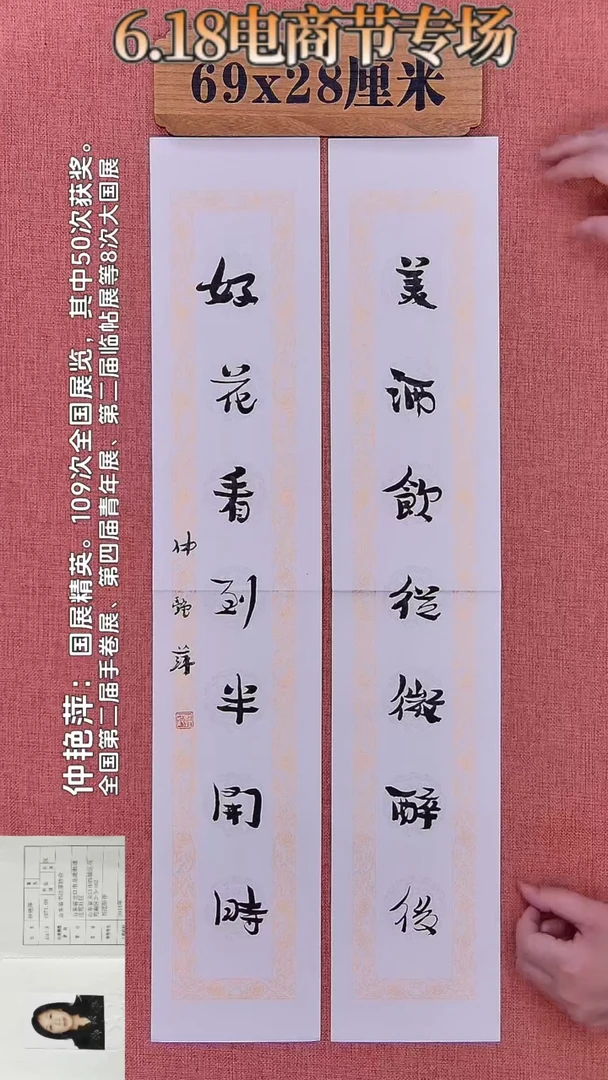 6.18电商节专场
69x28厘米
美酒飲從微醉後
好花看到半開時
仲艷萍
仲艳萍：国展精英。109次全国展览，其中50次获奖。
全国第二届手卷展、第四届青年展、第二届临帖展等8次大国展